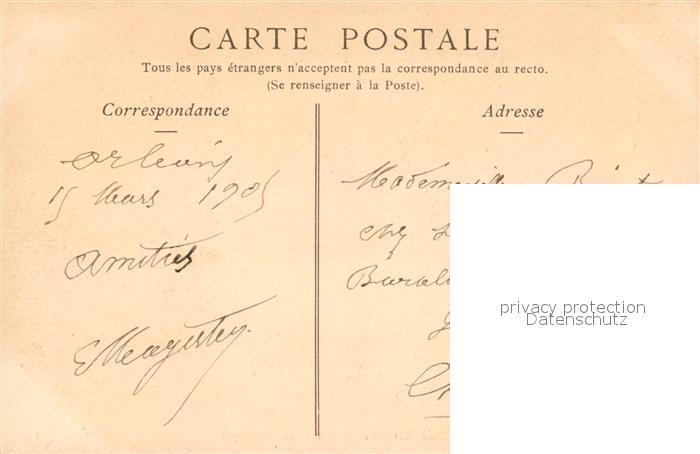 CARTE POSTALE
Tous les pays étrangers n'acceptent pas la correspondance au recto.
(Se renseigner à la Poste).
Correspondance
Adresse
Orléans
15 Mars 1905
Amitiés
Mademoiselle
chez
privacy protection
Datenschutz